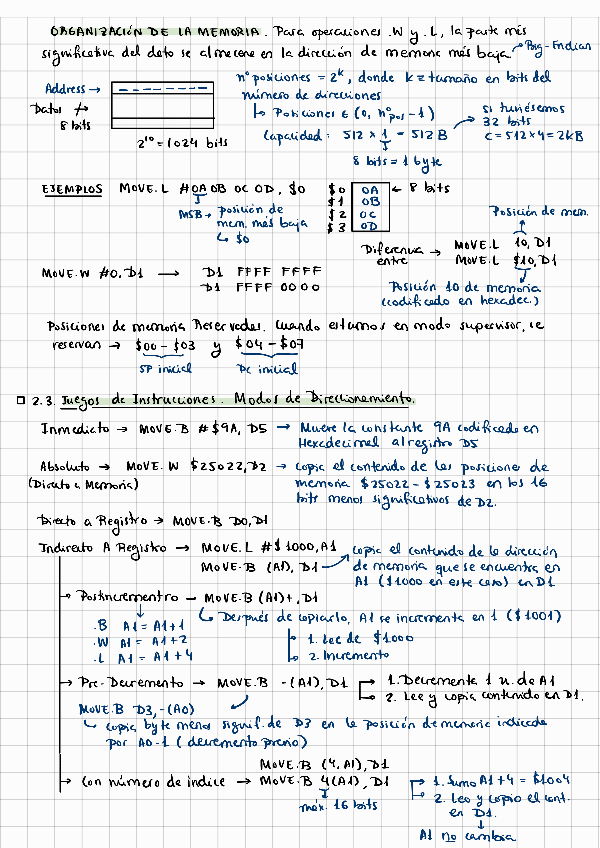 ORGANIZACIÓN DE LA MEMORIA. Para operaciones .W y .L, la parte más
significativa del dato se almacena en la dirección de memoria más baja → Big-Endian
Address →
Datos
8 bits
2^10 = 1024 bits
nº posiciones = 2^k, donde k = tamaño en bits del
número de direcciones
↳ Posiciones ∈ (0, nº pos - 1)
Capacidad: 512 × 1 = 512 B
8 bits = 1 byte
si tuviésemos
32 bits
C = 512×4 = 2kB
EJEMPLOS MOVE.L #0A 0B 0C 0D, $0
MSB → posición de
mem. más baja
↳ $0
$0 0A ← 8 bits
$1 0B
$2 0C
$3 0D
Posición de mem.
Diferencia entre → MOVE.L 10, D1
MOVE.L $10, D1
Posición 10 de memoria
(codificado en hexadec.)
MOVE.W #0, D1 → D1 FFFF FFFF
D1 FFFF 0000
Posiciones de memoria Reservadas. Cuando estamos en modo supervisor, se
reservan → $00 - $03 y $04 - $07
SP inicial PC inicial
2.3. Juegos de Instrucciones. Modos de Direccionamiento.
Inmediato → MOVE.B #$9A, D5 → Mueve la constante 9A codificado en
Hexadecimal al registro D5
Absoluto → MOVE.W $25022, D2 → copia el contenido de las posiciones de
(Directo a Memoria) memoria $25022 - $25023 en los 16
bits menos significativos de D2.
Directo a Registro → MOVE.B D0, D1
Indirecto A Registro → MOVE.L #$1000, A1
MOVE.B (A1), D1
copia el contenido de la dirección
de memoria que se encuentra en
A1 ($1000 en este caso) en D1
→ Postincremento → MOVE.B (A1)+, D1
↳ Después de copiarlo, A1 se incrementa en 1 ($1001)
.B A1 = A1+1
.W A1 = A1+2
.L A1 = A1+4
1. Lee de $1000
2. Incremento
→ Pre-Decremento → MOVE.B -(A1), D1
1. Decremente 1 u. de A1
2. Lee y copia contenido en D1.
MOVE.B D3, -(A0)
↳ copia byte menos signif. de D3 en la posición de memoria indicada
por A0-1 (decremento previo)
MOVE.B (4, A1), D1
→ Con número de índice → MOVE.B 4(A1), D1
máx. 16 bits
1. Sumo A1+4 = $1004
2. Leo y copio el cont.
en D1.
↓
A1 no cambia